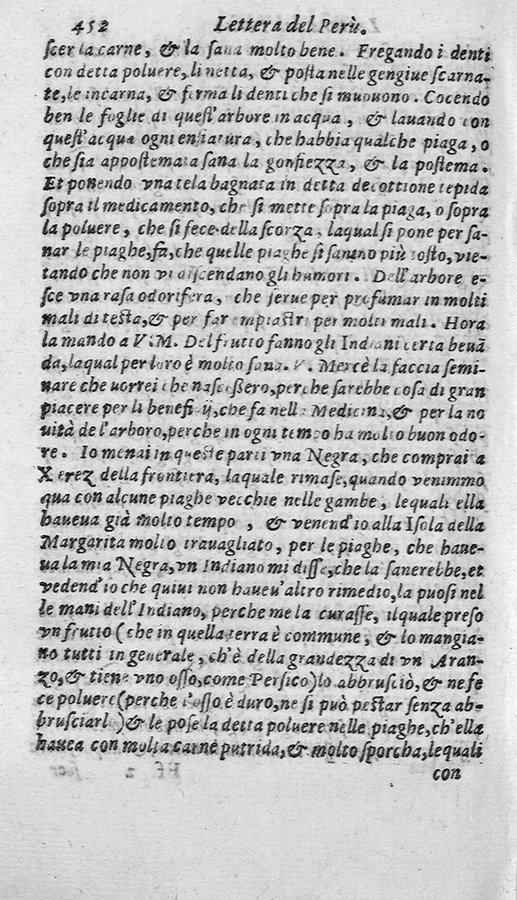 452 Lettera del Perù.
scer la carne, & la sana molto bene. Fregando i denti
con detta poluere, li netta, & posta nelle gengiue scarna-
te, le incarna, & ferma li denti che si muouono. Cocendo
ben le foglie di quest'arbore in acqua, & lauando con
quest'acqua ogni enfiatura, che habbia qualche piaga, o
che sia appostemata sana la gonfiezza, & la postema.
Et ponendo vna tela bagnata in detta decottione tepida
sopra il medicamento, che si mette sopra la piaga, o sopra
la poluere, che si fece della scorza, laqual si pone per sa-
nar le piaghe, fa, che quelle piaghe si sanino più tosto, vie-
tando che non vi discendano gli humori. Dell'arbore e-
sce vna rasa odorifera, che serue per profumar in molti
mali di testa, & per far empiastri per molti mali. Hora
la mando a V. M. Del frutto fanno gli Indiani certa beuã
da, laqual per loro è molto sana. V. Mercè la faccia semi-
nare che uorrei che nascessero, perche sarebbe cosa di gran
piacere per li beneficij, che fa nella Medicina, & per la no
uità de l'arboro, perche in ogni tempo ha molto buon odo-
re. Io menai in queste parti vna Negra, che comprai a
Xerez della frontiera, laquale rimase, quando venimmo
qua con alcune piaghe vecchie nelle gambe, lequali ella
haueua già molto tempo, & venend'io alla Isola della
Margarita molto trauagliato, per le piaghe, che haue-
ua la mia Negra, vn Indiano mi disse, che la sanerebbe, et
vedend'io che quiui non haueu'altro rimedio, la puosi nel
le mani dell'Indiano, perche me la curasse, ilquale preso
vn frutto (che in quella terra è commune, & lo mangia-
no tutti in generale, ch'è della grandezza di vn Aran-
zo, & tiene vno osso, come Persico) lo abbrusciò, & ne fe
ce poluere (perche l'osso è duro, ne si può pestar senza ab-
brusciarlo) & le pose la detta poluere nelle piaghe, ch'ella
hauea con molta carne putrida, & molto sporcha, lequali
con